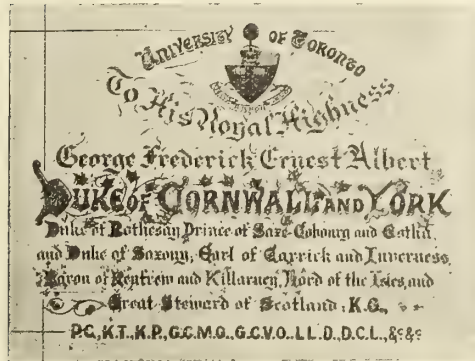 UNIVERSITY OF TORONTO
To His Royal Highness
George Frederick Ernest Albert
DUKE OF CORNWALL AND YORK
Duke of Rothesay, Prince of Saxe-Cobourg and Gotha
and Duke of Saxony, Earl of Carrick and Inverness,
Baron of Renfrew and Killarney, Lord of the Isles, and
Great Steward of Scotland, K.G.,
P.C., K.T., K.P., G.C.M.G., G.C.V.O., LL.D., D.C.L., &c &c